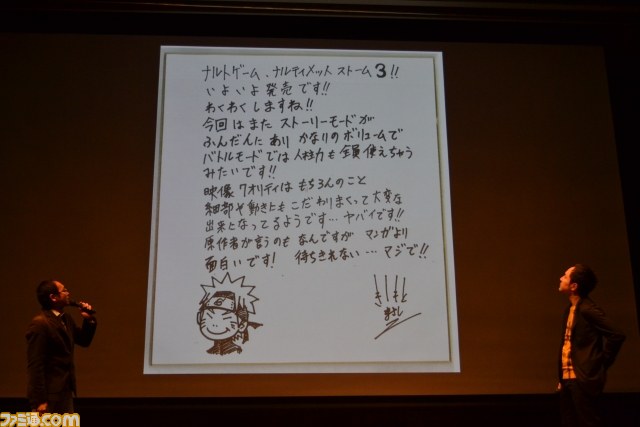 ナルトゲーム、ナルティメットストーム3!!
いよいよ発売です!!
わくわくしますね!!
今回はまたストーリーモードが
ふんだんにあり かなりのボリュームで
バトルモードでは人柱力も全員使えちゃう
みたいです!!
映像クオリティはもちろんのこと
細部や動きにもこだわりまくって大変な
出来となってるようです…ヤバイです!!
原作者が言うのもなんですが マンガより
面白いです! 待ちきれない…マジで!!
きしもと
まさし
ファミ通.com